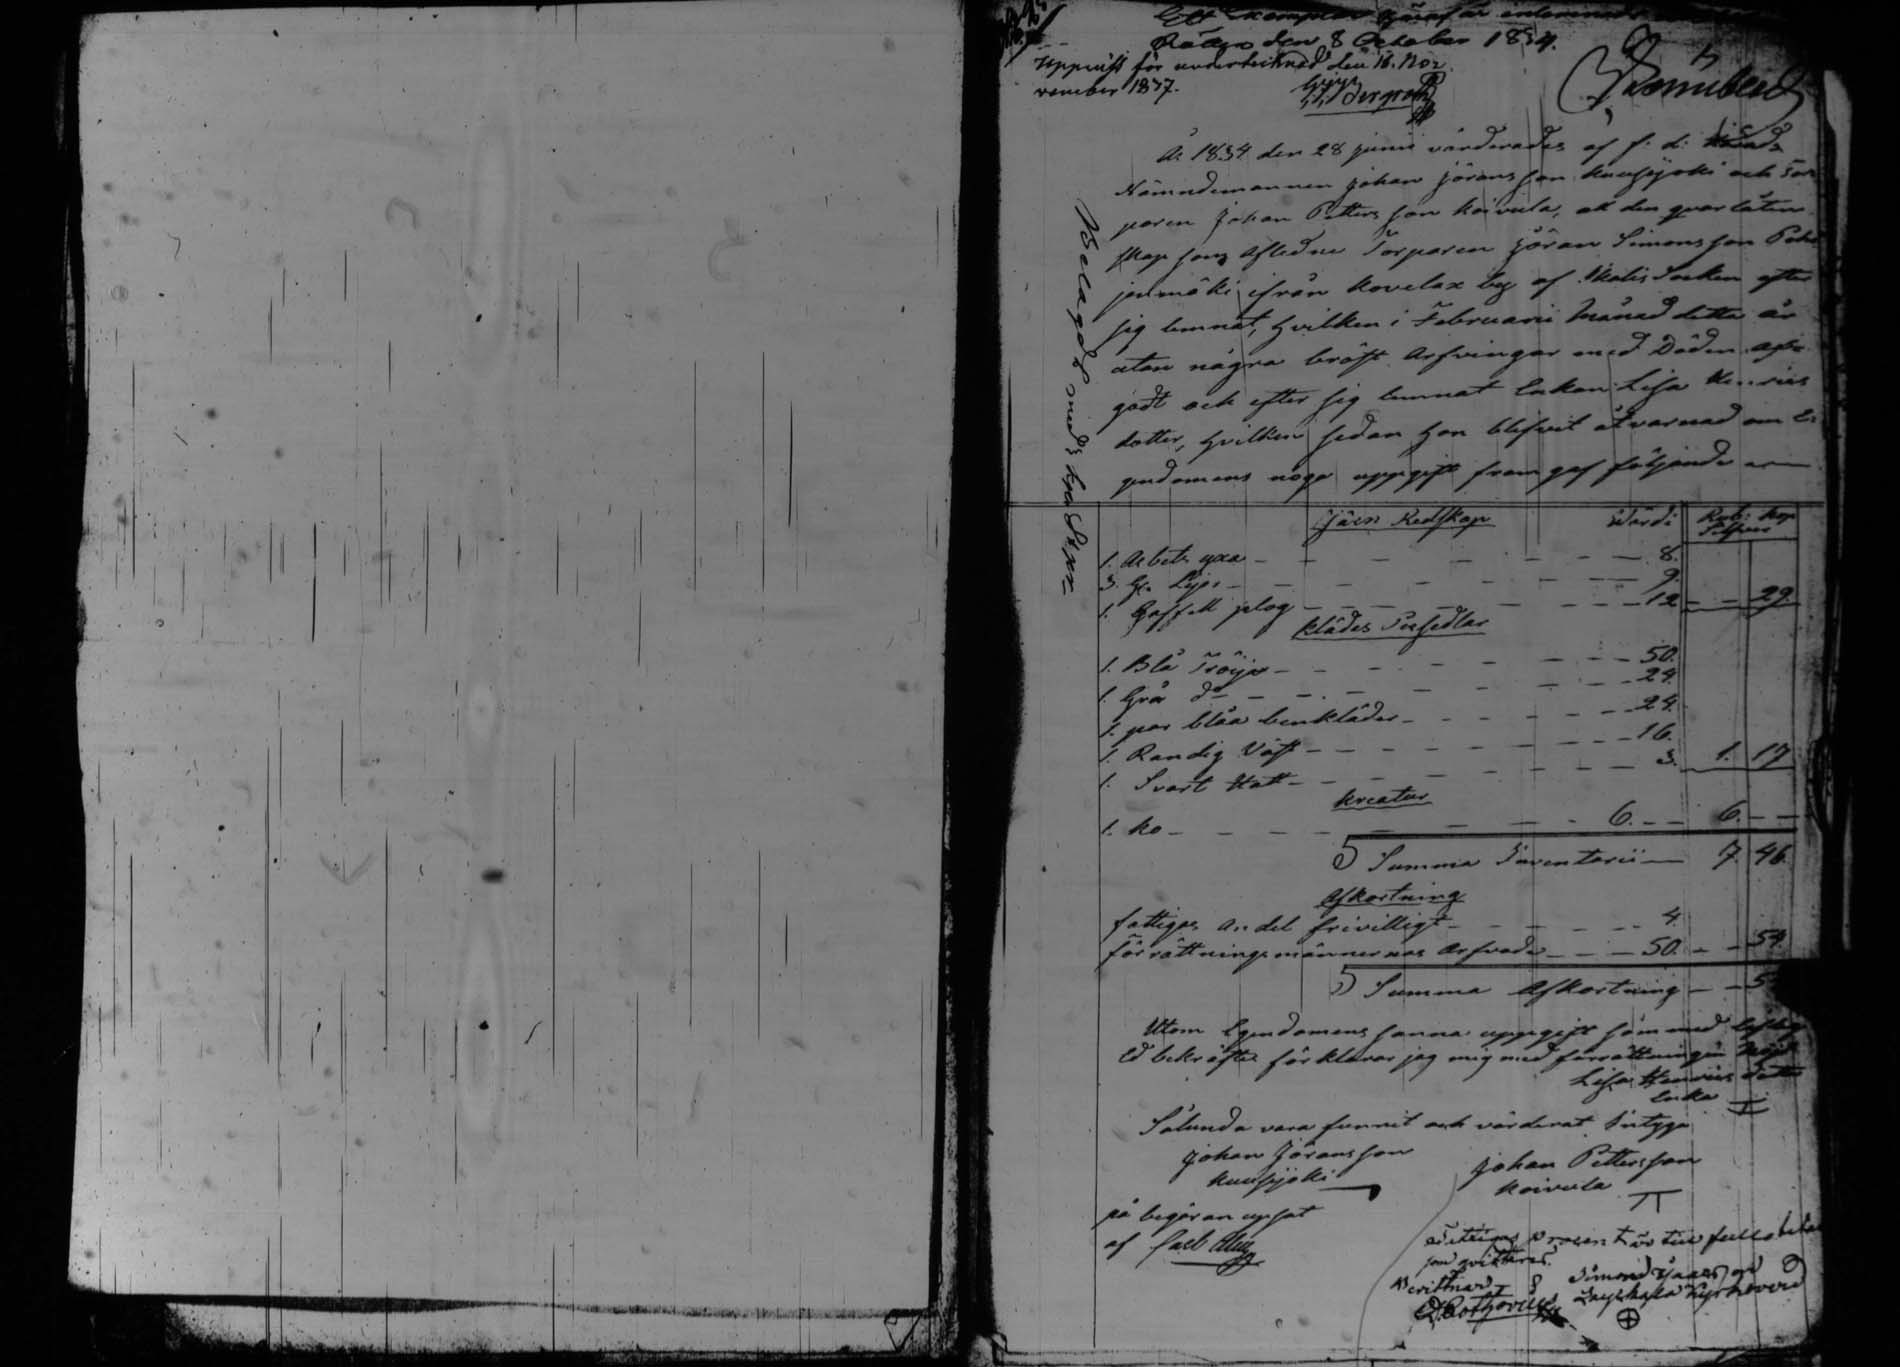 Ett Exemplar häraf är inlemnadt
Råttgn den 8 October 1834.
uppvist för undertecknad den 16. No-
vember 1837.
Bergroth
År 1834 den 28 junii värderades af f: d: Härads
Nämndemannen Johan Jöransson Kuusijoki och Tor
paren Johan Pettersson Koivula, all den qvarlåten
skap som Afledne Torparen Jöran Simonsson
mäki ifrån Kovelax by af Socken efter
sig lemnat, hvilken i Februarii Månad detta år
utan några bröst Arfvingar med Döden afs
gådt och efter sig lemnat Enkan Lisa Henrics
dotter, hvilken sedan hon blifvit åtvarnad om E
gendomens noga uppgift fram gaf följande
Belagdt med 3 kop. Stpr
Järn Redskap Värde Rub: Kop Silfver
1. Arbets yxa 8.
3. Lijor 9.
1. Gaffell plog 12 29
Klädes Persedlar
1. Blå Tröija 50.
1. Grå d:o 24.
1. par blåa benkläder 24.
1. Randig Väst 16.
1. Svart Hatt 3. 1. 17
Kreatur
1. Ko 6. 6.
Summa Inventarii 7. 46.
Afkortning
fattigas andel frivilligt 4
Förrättningsmännernas Arfvode 50. 54.
Summa Afkortning
Utom Egendomens sanna uppgift som med liflig
Ed bekräftes förklarar jag mig med förrättningen Nöjd
Lisa Henrics dotter
Enka
Sålunda vara funnit och värderat Intyga
Johan Jöransson
Kuusijoki
Johan Pettersson
Koivula
på begäran upsat
af Carl
Fattigas Procent är till fullo betalt
som qvitteras.
Simond
Kyrkovärd